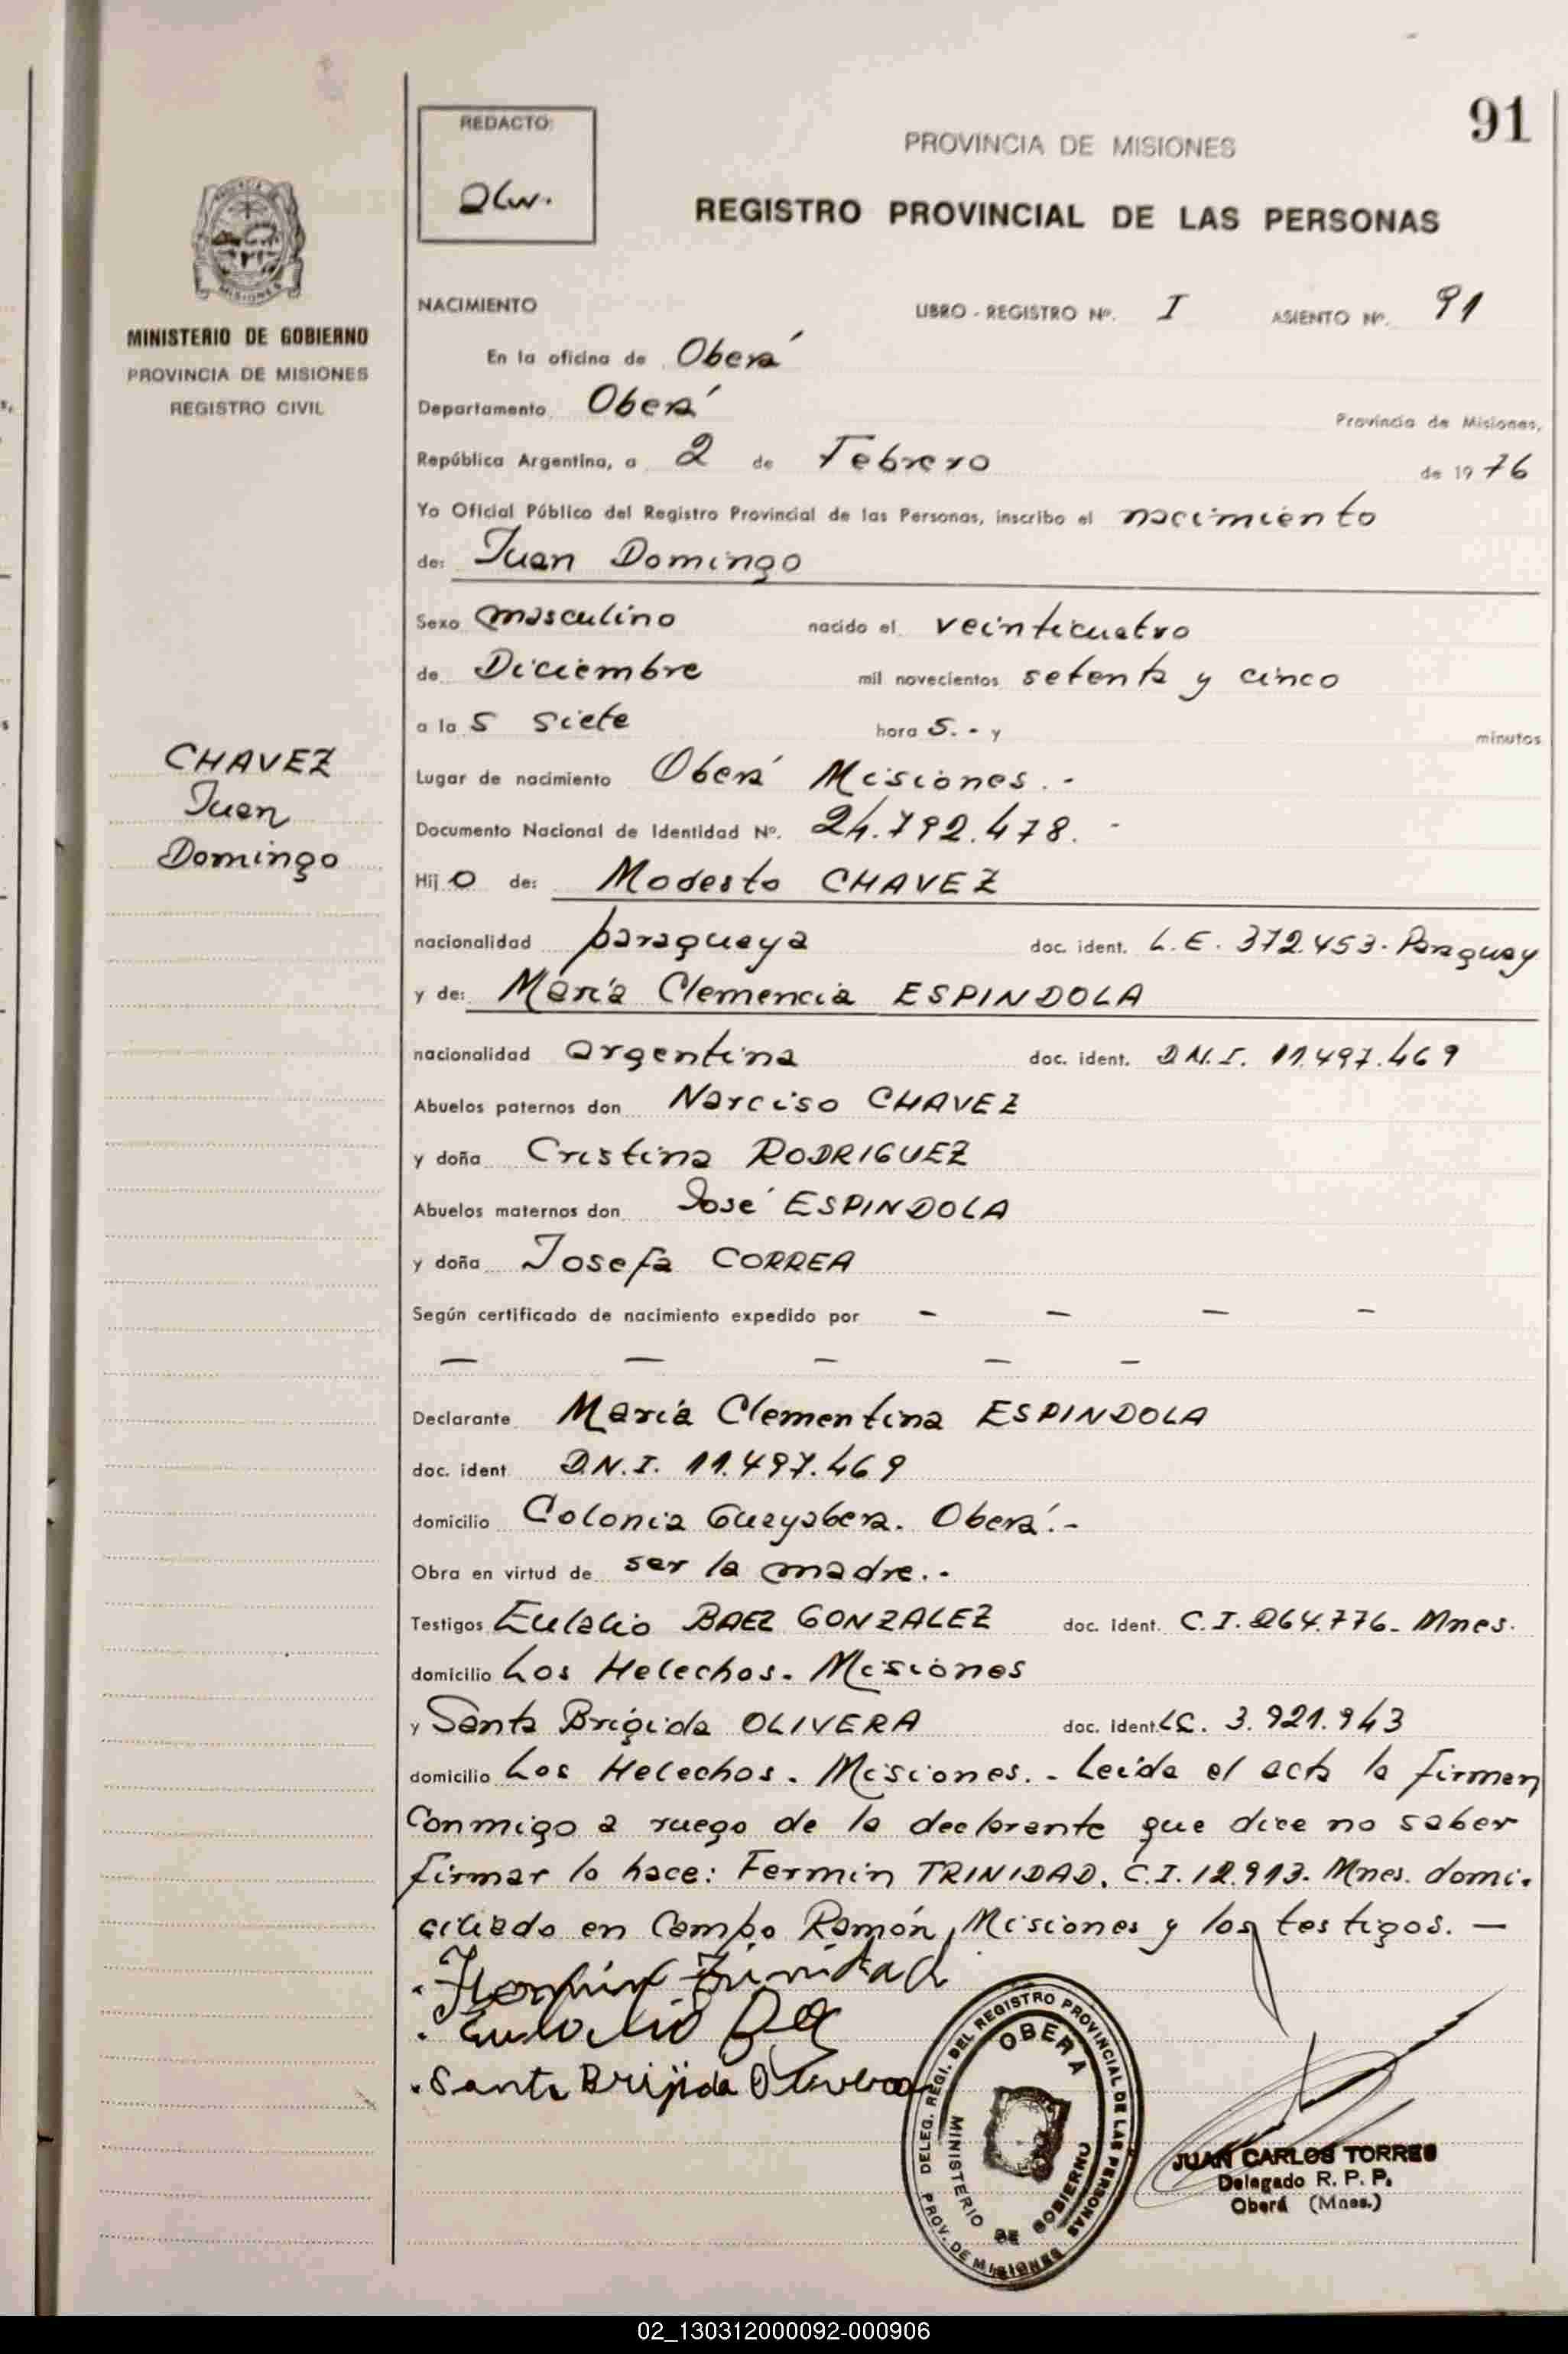 91
REDACTO:
PROVINCIA DE MISIONES
REGISTRO PROVINCIAL DE LAS PERSONAS
MINISTERIO DE GOBIERNO
PROVINCIA DE MISIONES
REGISTRO CIVIL
NACIMIENTO LIBRO - REGISTRO Nº. I ASIENTO Nº. 91
En la oficina de Oberá
Departamento Oberá Provincia de Misiones,
República Argentina, a 2 de Febrero de 1976
Yo Oficial Público del Registro Provincial de las Personas, inscribo el nacimiento
de: Juan Domingo
Sexo masculino nacido el veinticuatro
de Diciembre mil novecientos setenta y cinco
a la s siete hora s. - y minutos
CHAVEZ
Juan
Domingo
Lugar de nacimiento Oberá Misiones. -
Documento Nacional de Identidad Nº. 24.792.478. -
Hij o de: Modesto CHAVEZ
nacionalidad paraguaya doc. ident. L.E. 372.453. Paraguay
y de: María Clemencia ESPINDOLA
nacionalidad argentina doc. ident. D.N.I. 11.497.469
Abuelos paternos don Narciso CHAVEZ
y doña Cristina RODRIGUEZ
Abuelos maternos don José ESPINDOLA
y doña Josefa CORREA
Según certificado de nacimiento expedido por - - - -
- - - - -
Declarante María Clementina ESPINDOLA
doc. ident D.N.I. 11.497.469
domicilio Colonia Guayabera. Oberá.-
Obra en virtud de ser la madre. -
Testigos Eulalio BAEZ GONZALEZ doc. ident. C.I. 264.776. Mnes.
domicilio Los Helechos. Misiones
y Santa Brígida OLIVERA doc. ident. LC. 3.921.943
domicilio Los Helechos. Misiones. - Leída el acta la firman
conmigo a ruego de la declarante que dice no saber
firmar lo hace: Fermín TRINIDAD. C.I. 12.913. Mnes. domi-
ciliado en Campo Ramón, Misiones y los testigos. —
Trinidad
Eulalio
Santa Brijida Olivera
DELEG. REGI. DEL REGISTRO PROVINCIAL DE LAS PERSONAS
OBERA
MINISTERIO DE GOBIERNO
PROV. DE MISIONES
JUAN CARLOS TORRES
Delegado R. P. P.
Oberá (Mnes.)
02_130312000092-000906